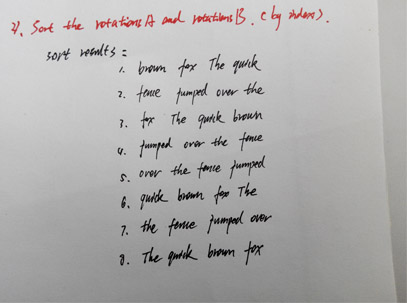 4. Sort the rotationsA and rotationsB. (by index).
sort results:
1. brown fox The quick
2. fence jumped over the
3. fox The quick brown
4. jumped over the fence
5. over the fence jumped
6. quick brown fox The
7. the fence jumped over
8. The quick brown fox